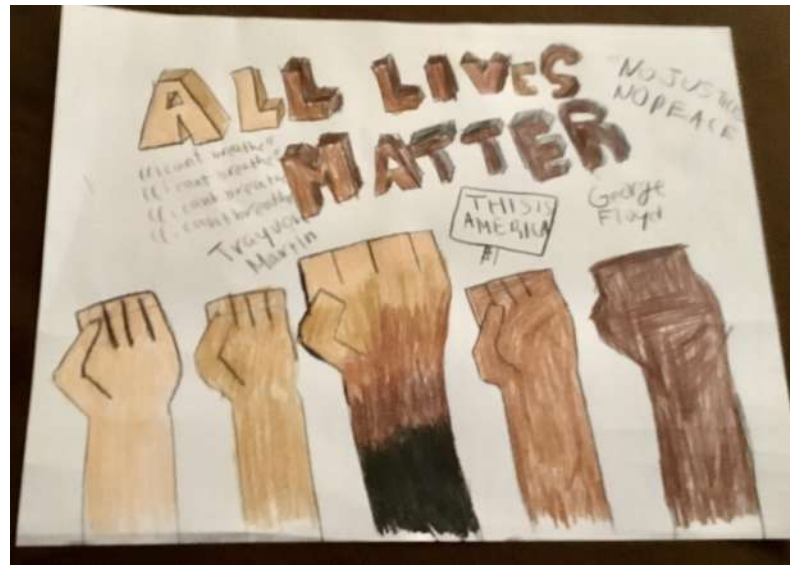 ALL LIVES
MATTER
NO JUSTICE
NO PEACE
"I cant breathe"
"i cant breathe
"i cant breathe
"i cant breathe
Trayvon
Martin
THIS IS
AMERICA
George
Floyd